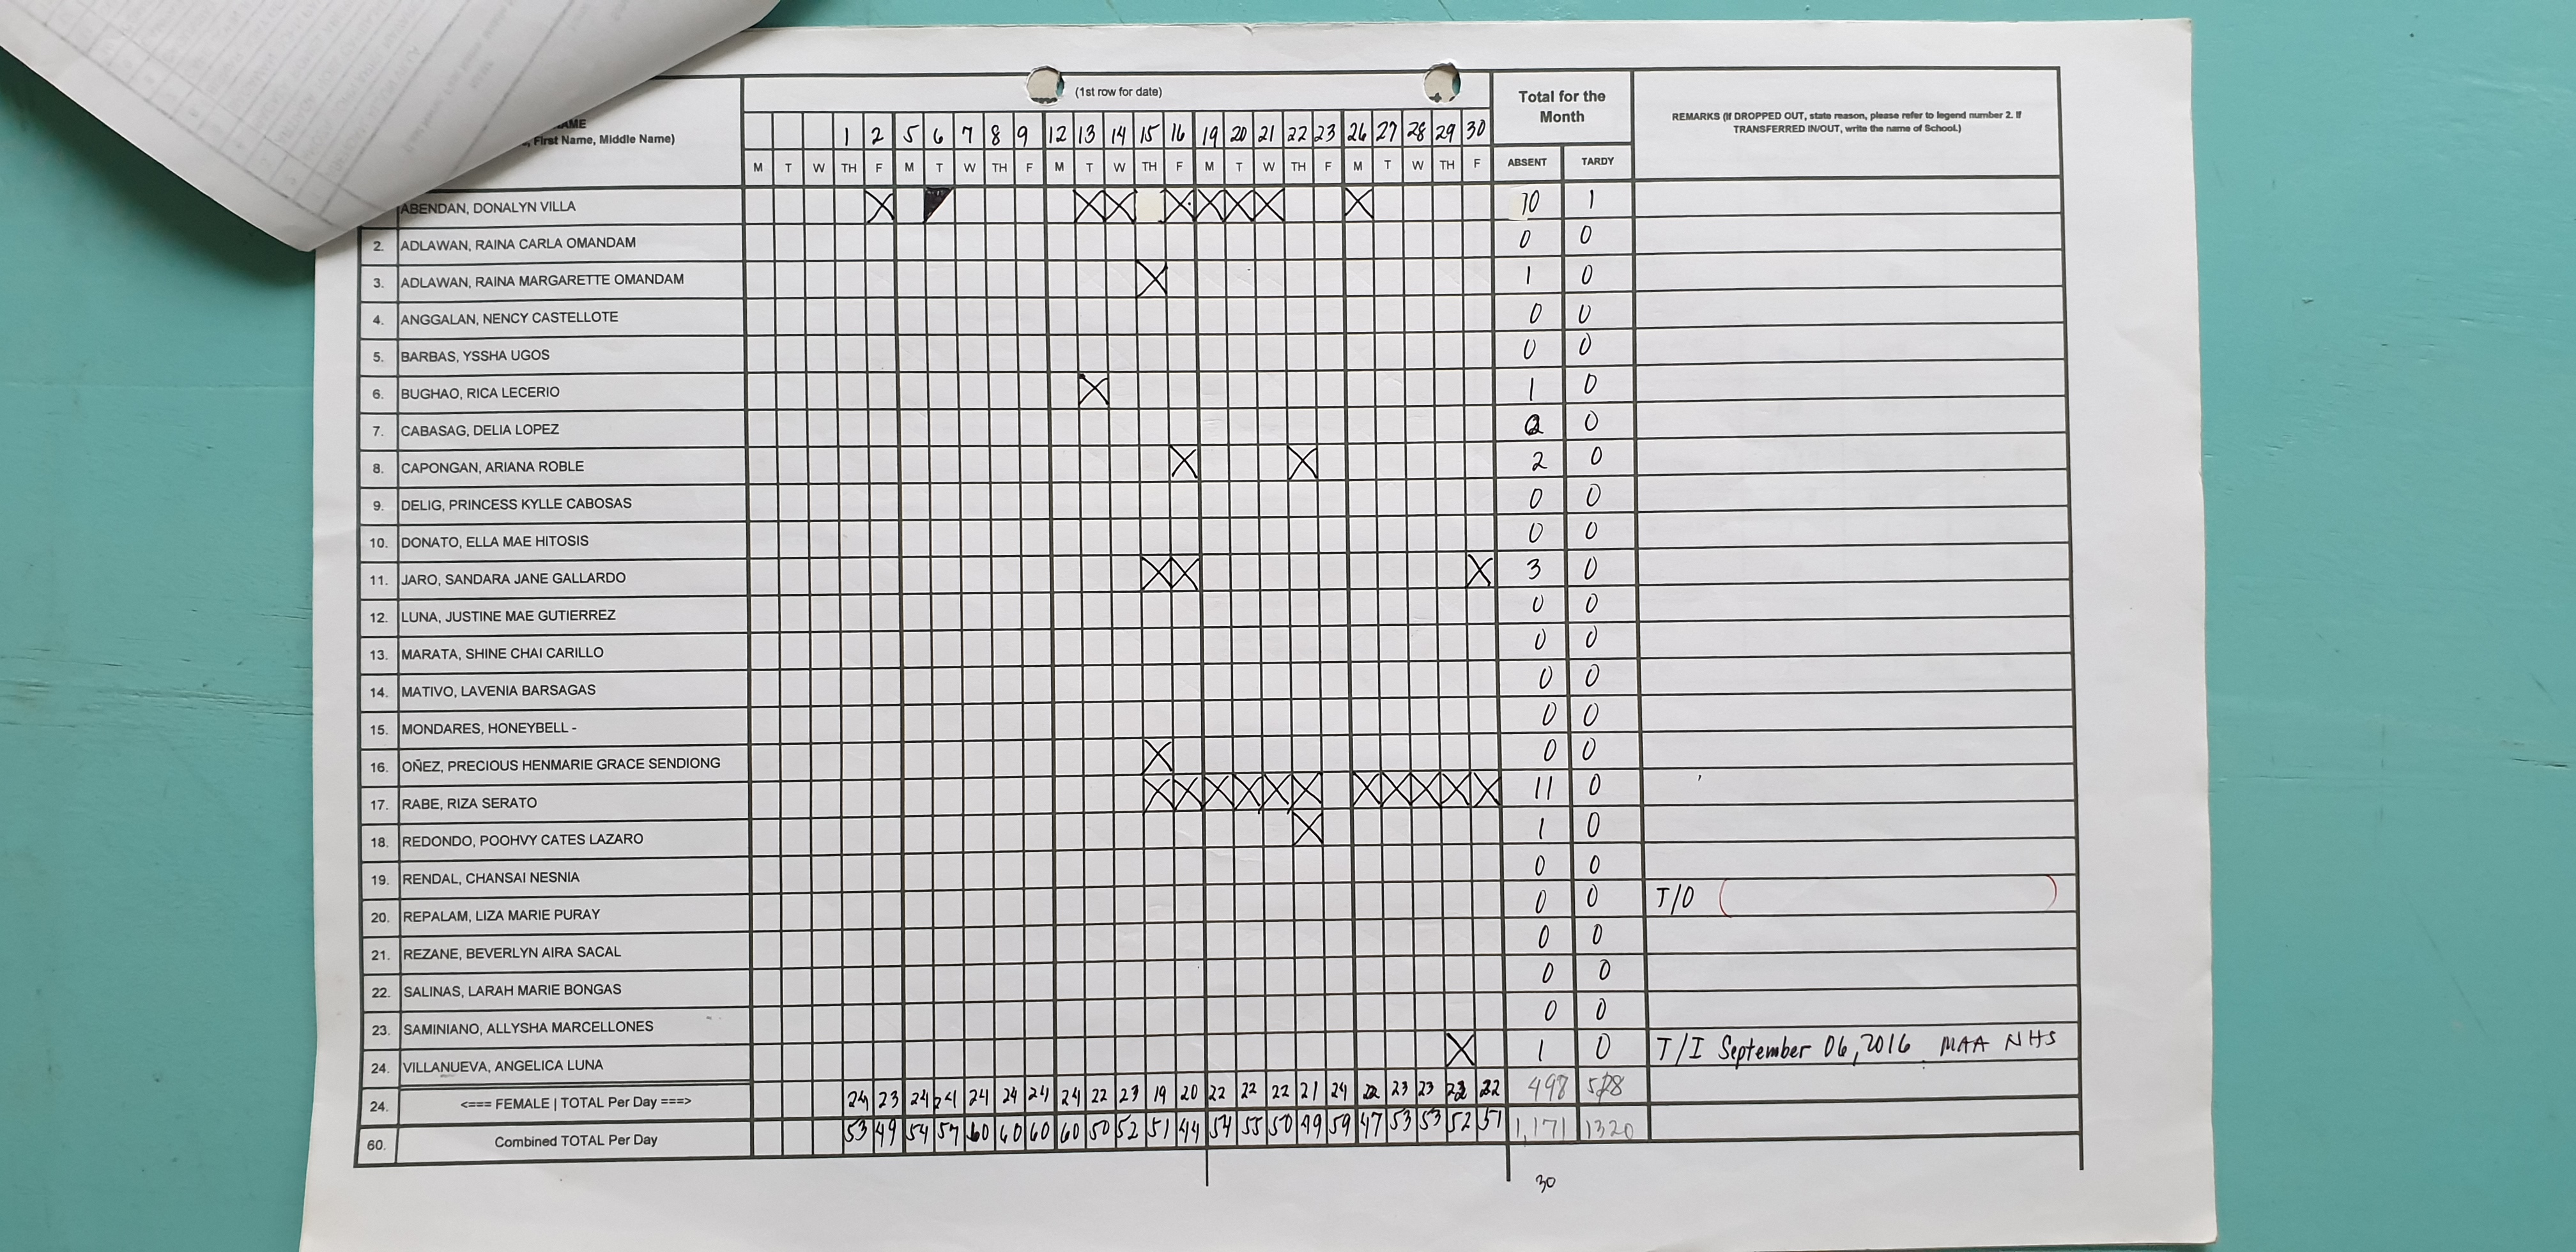 (1st row for date)
Total for the Month
REMARKS (If DROPPED OUT, state reason, please refer to legend number 2. If TRANSFERRED IN/OUT, write the name of School.)
First Name, Middle Name)
1 2 5 6 7 8 9 12 13 14 15 16 19 20 21 22 23 26 27 28 29 30
M T W TH F M T W TH F M T W TH F M T W TH F M T W TH F ABSENT TARDY
ABENDAN, DONALYN VILLA 10 1
2. ADLAWAN, RAINA CARLA OMANDAM 0 0
3. ADLAWAN, RAINA MARGARETTE OMANDAM 1 0
4. ANGGALAN, NENCY CASTELLOTE 0 0
5. BARBAS, YSSHA UGOS 0 0
6. BUGHAO, RICA LECERIO 1 0
7. CABASAG, DELIA LOPEZ 0 0
8. CAPONGAN, ARIANA ROBLE 2 0
9. DELIG, PRINCESS KYLLE CABOSAS 0 0
10. DONATO, ELLA MAE HITOSIS 0 0
11. JARO, SANDARA JANE GALLARDO 3 0
12. LUNA, JUSTINE MAE GUTIERREZ 0 0
13. MARATA, SHINE CHAI CARILLO 0 0
14. MATIVO, LAVENIA BARSAGAS 0 0
15. MONDARES, HONEYBELL - 0 0
16. OÑEZ, PRECIOUS HENMARIE GRACE SENDIONG 0 0
17. RABE, RIZA SERATO 11 0
18. REDONDO, POOHVY CATES LAZARO 1 0
19. RENDAL, CHANSAI NESNIA 0 0
20. REPALAM, LIZA MARIE PURAY 0 0 T/O ( )
21. REZANE, BEVERLYN AIRA SACAL 0 0
22. SALINAS, LARAH MARIE BONGAS 0 0
23. SAMINIANO, ALLYSHA MARCELLONES 0 0
24. VILLANUEVA, ANGELICA LUNA 1 0 T/I September 06, 2016 MAA NHS
24. <=== FEMALE | TOTAL Per Day ===> 24 23 24 24 24 24 24 24 22 23 19 20 22 22 22 21 24 22 23 23 22 22 498 528
60. Combined TOTAL Per Day 53 49 54 57 60 60 60 60 50 52 51 44 54 55 50 49 59 47 53 53 52 51 1,171 1320
30